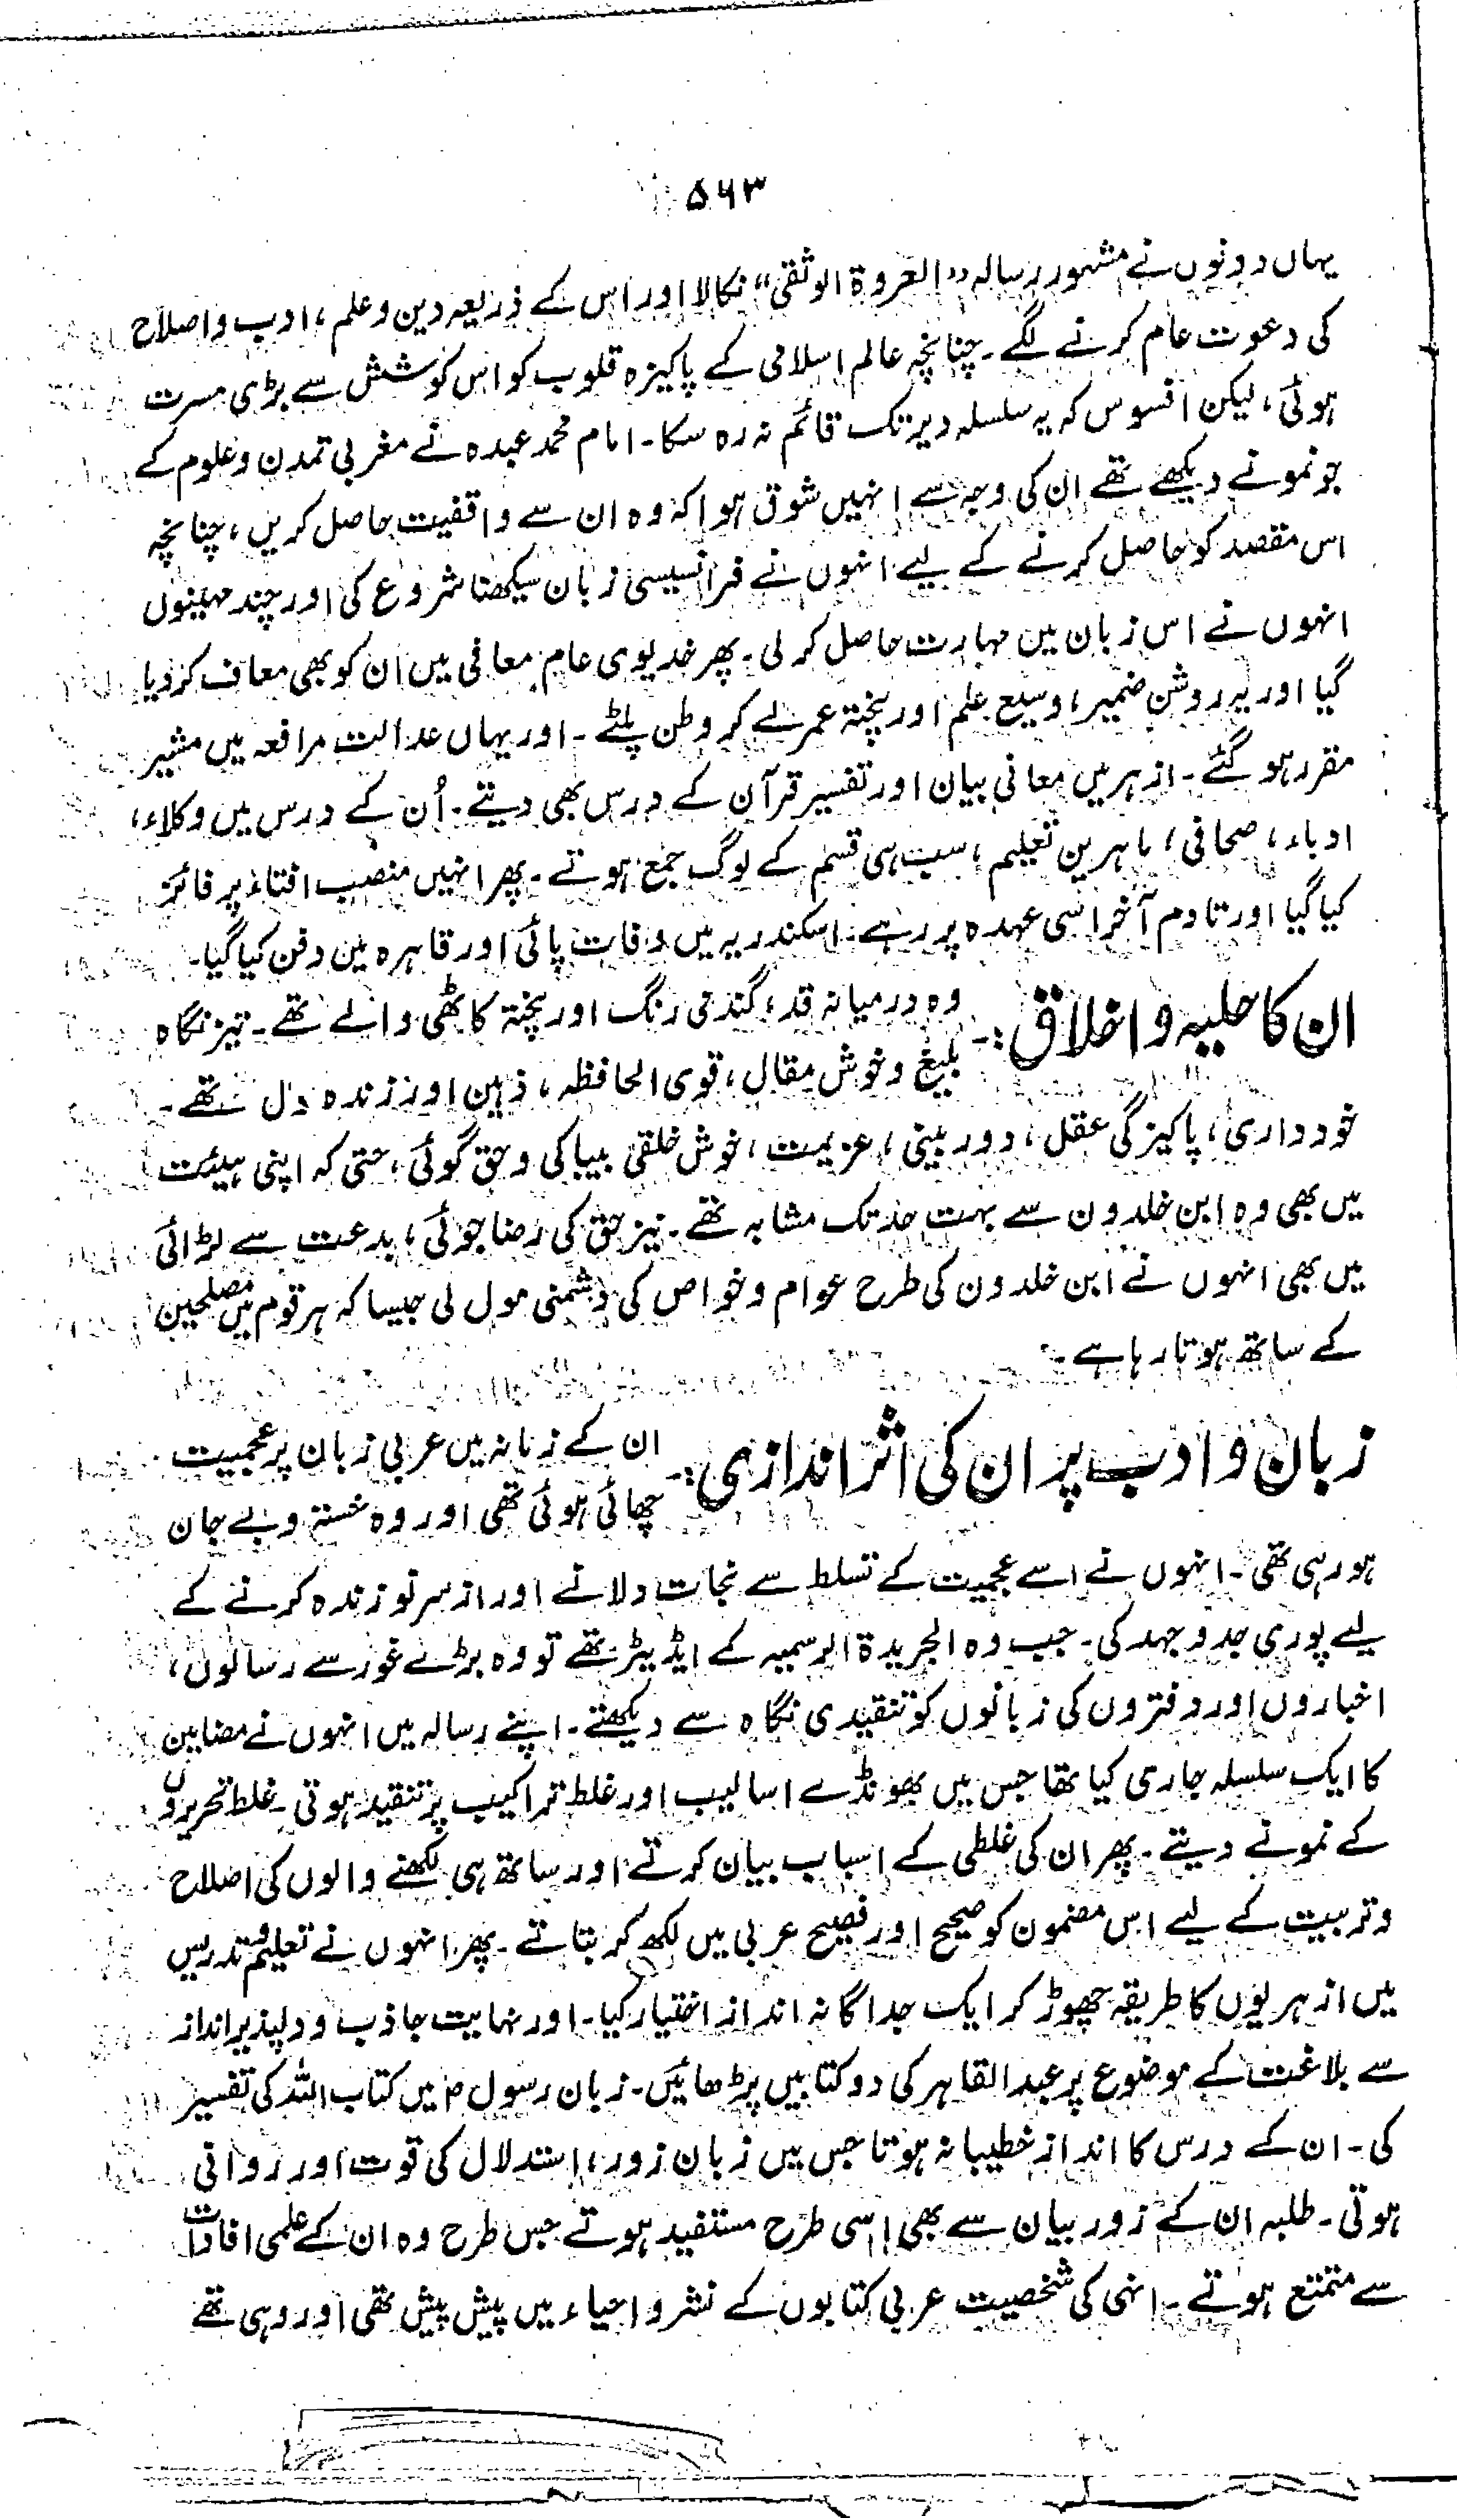 ۵۶۳
یہاں دونوں نے مشہور رسالہ ”العروۃ الوثقی“ نکالا اور اس کے ذریعہ دین و علم، ادب و اصلاح
کی دعوت عام کرنے لگے۔ چنانچہ عالم اسلامی کے پاکیزہ قلوب کو اس کوشش سے بڑی مسرت
ہوئی، لیکن افسوس کہ یہ سلسلہ دیر تک قائم نہ رہ سکا۔ امام محمد عبدہ نے مغربی تمدن و علوم کے
جو نمونے دیکھے تھے ان کی وجہ سے انہیں شوق ہوا کہ وہ ان سے واقفیت حاصل کریں، چنانچہ
اس مقصد کو حاصل کرنے کے لیے انہوں نے فرانسیسی زبان سیکھنا شروع کی اور چند مہینوں
انہوں نے اس زبان میں مہارت حاصل کر لی۔ پھر خدیوی عام معافی میں ان کو بھی معاف کر دیا
گیا اور یہ روشن ضمیر، وسیع علم اور پختہ عمر لے کر وطن پلٹے۔ اور یہاں عدالت مرافعہ میں مشیر
مقرر ہو گئے۔ ازہر میں معانی بیان اور تفسیر قرآن کے درس بھی دیتے۔ اُن کے درس میں وکلاء،
ادباء، صحافی، ماہرین تعلیم، سب ہی قسم کے لوگ جمع ہوتے۔ پھر انہیں منصب افتاء پر فائز
کیا گیا اور تادم آخر اسی عہدہ پر رہے۔ اسکندریہ میں وفات پائی اور قاہرہ میں دفن کیا گیا۔
ان کا حلیہ و اخلاق:۔ وہ درمیانہ قد، گندمی رنگ اور پختہ کاٹھی والے تھے۔ تیز نگاہ
بلیغ و خوش مقال، قوی الحافظہ، ذہین اور زندہ دل تھے۔
خودداری، پاکیزگی عقل، دور بینی، عزیمت، خوش خلقی بیباکی و حق گوئی، حتی کہ اپنی ہیئت
میں بھی وہ ابن خلدون سے بہت حد تک مشابہ تھے۔ نیز حق کی رضا جوئی، بدعت سے لڑائی
میں بھی انہوں نے ابن خلدون کی طرح عوام و خواص کی دشمنی مول لی جیسا کہ ہر قوم میں مصلحین
کے ساتھ ہوتا رہا ہے۔
زبان و ادب پر ان کی اثر اندازی:۔ ان کے زمانہ میں عربی زبان پر عجمیت
چھائی ہوئی تھی اور وہ خستہ و بے جان
ہو رہی تھی۔ انہوں نے اسے عجمیت کے تسلط سے نجات دلانے اور از سر نو زندہ کرنے کے
لیے پوری جدو جہد کی۔ جب وہ الجریدۃ الرسمیہ کے ایڈیٹر تھے تو وہ بڑے غور سے رسالوں،
اخباروں اور دفتروں کی زبانوں کو تنقیدی نگاہ سے دیکھتے۔ اپنے رسالہ میں انہوں نے مضامین
کا ایک سلسلہ جاری کیا تھا جس میں بھونڈے اسالیب اور غلط تراکیب پر تنقید ہوتی۔ غلط تحریروں
کے نمونے دیتے۔ پھر ان کی غلطی کے اسباب بیان کرتے اور ساتھ ہی لکھنے والوں کی اصلاح
و تربیت کے لیے اس مضمون کو صحیح اور فصیح عربی میں لکھ کر بتاتے۔ پھر انہوں نے تعلیم و تدریس
میں ازہریوں کا طریقہ چھوڑ کر ایک جداگانہ انداز اختیار کیا۔ اور نہایت جاذب و دلپذیر انداز
سے بلاغت کے موضوع پر عبد القاہر کی دو کتابیں پڑھائیں۔ زبان رسولؐ میں کتاب اللہ کی تفسیر
کی۔ ان کے درس کا انداز خطیبانہ ہوتا جس میں زبان زور، استدلال کی قوت اور روانی
ہوتی۔ طلبہ ان کے زور بیان سے بھی اسی طرح مستفید ہوتے جس طرح وہ ان کے علمی افادات
سے متمتع ہوتے۔ انہی کی شخصیت عربی کتابوں کے نشر و احیاء میں پیش پیش تھی اور وہی تھے